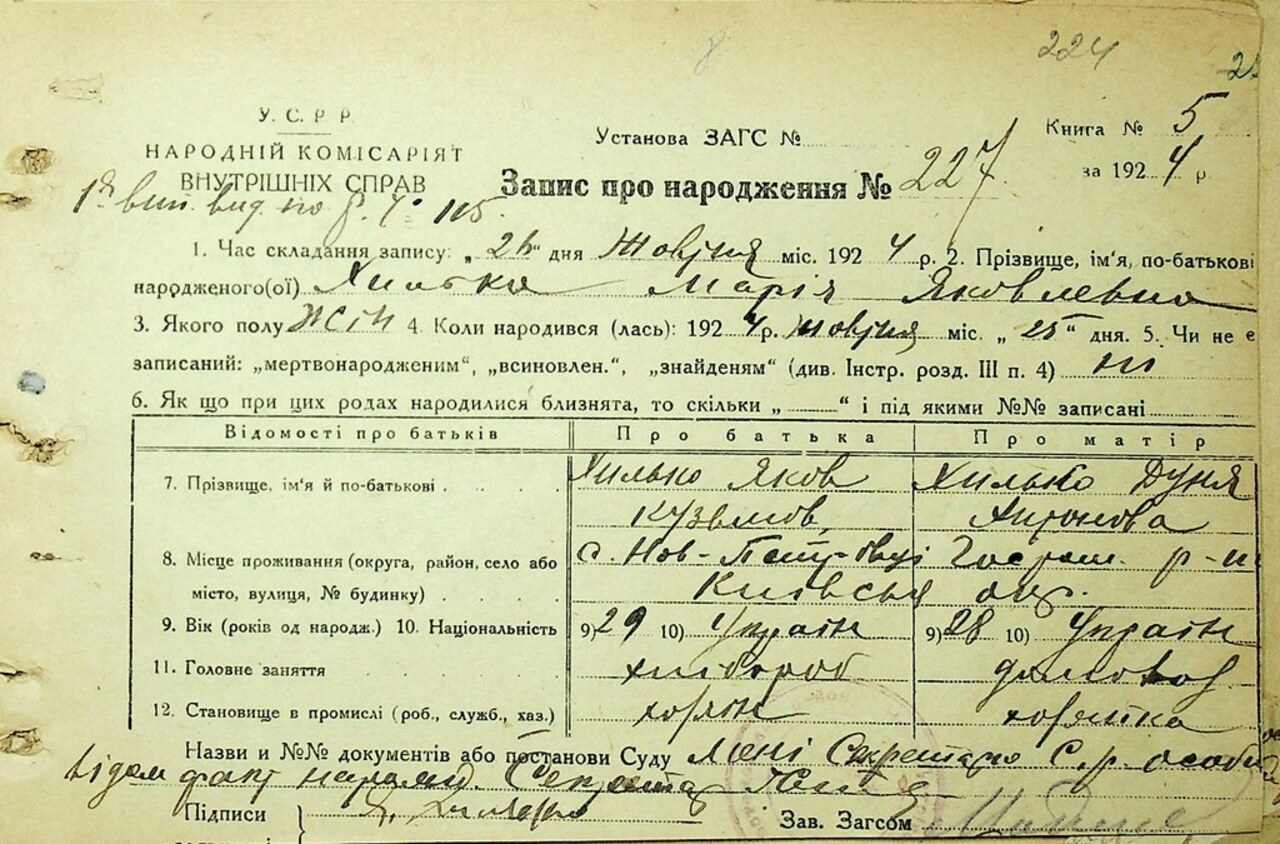 224
У. С. Р Р.
Установа ЗАГС №
Книга № 5
НАРОДНІЙ КОМІСАРІЯТ
за 1924 р.
ВНУТРІШНІХ СПРАВ
Запис про народження № 227
115
1. Час складання запису: „26“ дня Жовтня міс. 1924 р. 2. Прізвище, ім'я, по-батькові
народженого(ої) Хилько Марія Яковлевна
3. Якого полу Жін 4. Коли народився (лась): 1924 р. Жовтня міс. „25“ дня. 5. Чи не є
записаний: „мертвонародженим“, „всиновлен.“, „знайденям“ (див. Інстр. розд. III п. 4) ні
6. Як що при цих родах народилися близнята, то скільки „ “ і під якими №№ записані
Відомості про батьків Про батька Про матір
7. Прізвище, ім'я й по-батькові Хилько Яков Хилько Дуня
Кузьмов. Антонова
8. Місце проживання (округа, район, село або с. Нов-Петрівці Гостом. р-н
місто, вулиця, № будинку) Київськ окр.
9. Вік (років од народж.) 10. Національність 9) 29 10) Українн 9) 28 10) Українн
11. Головне заняття хлібороб домовод
12. Становище в промислі (роб., служб., хаз.) хозяїн хозяйка
Назви и №№ документів або постанови Суду Мені Секретарю С.р. особи
відом факт народж. Секретар
Підписи Я. Хилько Зав. Загсом